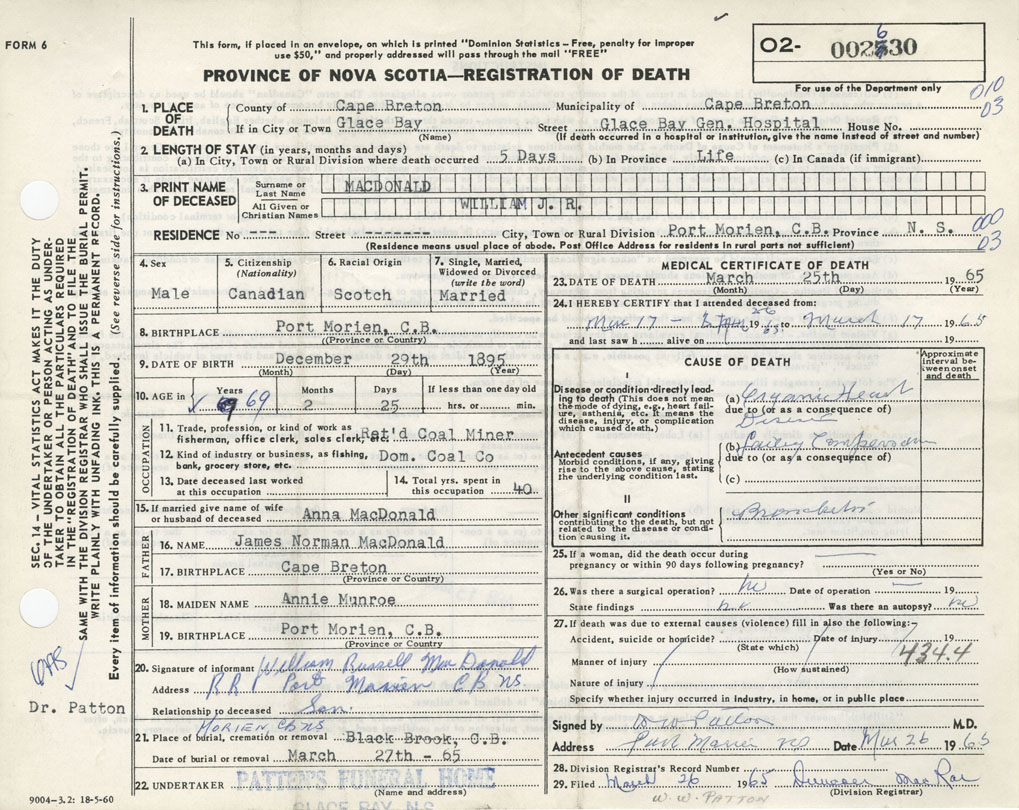 FORM 6
This form, if placed in an envelope, on which is printed "Dominion Statistics – Free, penalty for improper
use $50," and properly addressed will pass through the mail "FREE"
O2- 002630
For use of the Department only
PROVINCE OF NOVA SCOTIA—REGISTRATION OF DEATH
010
03
1. PLACE OF DEATH
County of Cape Breton Municipality of Cape Breton
If in City or Town Glace Bay Street Glace Bay Gen. Hospital House No.
(Name) (If death occurred in a hospital or institution, give the name instead of street and number)
2. LENGTH OF STAY (in years, months and days)
(a) In City, Town or Rural Division where death occurred 5 Days (b) In Province Life (c) In Canada (if immigrant)
3. PRINT NAME OF DECEASED
Surname or Last Name MACDONALD
All Given or Christian Names WILLIAM J. R.
RESIDENCE No --- Street ------- City, Town or Rural Division Port Morien, C.B. Province N. S.
000
03
(Residence means usual place of abode. Post Office Address for residents in rural parts not sufficient)
4. Sex
Male
5. Citizenship (Nationality)
Canadian
6. Racial Origin
Scotch
7. Single, Married, Widowed or Divorced (write the word)
Married
8. BIRTHPLACE Port Morien, C.B.
(Province or Country)
9. DATE OF BIRTH December 29th 1895
(Month) (Day) (Year)
10. AGE in Years 69 Months 2 Days 25 If less than one day old hrs. or min.
OCCUPATION
11. Trade, profession, or kind of work as fisherman, office clerk, sales clerk, etc. Ret'd Coal Miner
12. Kind of industry or business, as fishing, bank, grocery store, etc. Dom. Coal Co
13. Date deceased last worked at this occupation
14. Total yrs. spent in this occupation 40
15. If married give name of wife or husband of deceased Anna MacDonald
FATHER
16. NAME James Norman MacDonald
17. BIRTHPLACE Cape Breton
(Province or Country)
MOTHER
18. MAIDEN NAME Annie Munroe
19. BIRTHPLACE Port Morien, C.B.
(Province or Country)
20. Signature of informant William Russell MacDonald
Address R R 1 Port Morien C B NS
Relationship to deceased Son.
MORIEN, CB NS
21. Place of burial, cremation or removal Black Brook, C.B.
Date of burial or removal March 27th - 65
22. UNDERTAKER PATTEN'S FUNERAL HOME
(Name and address)
GLACE BAY, N.S.
9004-3.2: 18-5-60
MEDICAL CERTIFICATE OF DEATH
23. DATE OF DEATH March 25th 1965
(Month) (Day) (Year)
24. I HEREBY CERTIFY that I attended deceased from:
Mar 17 - 19 65 to March 17 1965
and last saw h alive on 19
CAUSE OF DEATH
Approximate interval between onset and death
I
Disease or condition directly leading to death (This does not mean the mode of dying, e.g., heart failure, asthenia, etc. It means the disease, injury, or complication which caused death.)
(a) Organic Heart
due to (or as a consequence of)
Disease
Antecedent causes
Morbid conditions, if any, giving rise to the above cause, stating the underlying condition last.
(b) Failing Compensation
due to (or as a consequence of)
(c)
II
Other significant conditions
contributing to the death, but not related to the disease or condition causing it.
Bronchitis
25. If a woman, did the death occur during pregnancy or within 90 days following pregnancy?
(Yes or No)
26. Was there a surgical operation? no Date of operation 19
State findings Was there an autopsy? no
27. If death was due to external causes (violence) fill in also the following:
Accident, suicide or homicide? Date of injury 19
(State which)
434.4
Manner of injury
(How sustained)
Nature of injury
Specify whether injury occurred in industry, in home, or in public place
Signed by W W Patton M.D.
Address Port Morien Date Mar 26 1965
28. Division Registrar's Record Number
29. Filed March 26 1965 MacRae
(Division Registrar)
W. W. PATTON
SEC. 14 – VITAL STATISTICS ACT MAKES IT THE DUTY
OF THE UNDERTAKER OR PERSON ACTING AS UNDER-
TAKER TO OBTAIN ALL THE PARTICULARS REQUIRED
IN THE "REGISTRATION OF DEATH" AND TO FILE THE
SAME WITH THE DIVISION REGISTRAR WHO SHALL ISSUE THE BURIAL PERMIT.
WRITE PLAINLY WITH UNFADING INK. THIS IS A PERMANENT RECORD.
Every item of information should be carefully supplied. (See reverse side for instructions.)
Dr. Patton